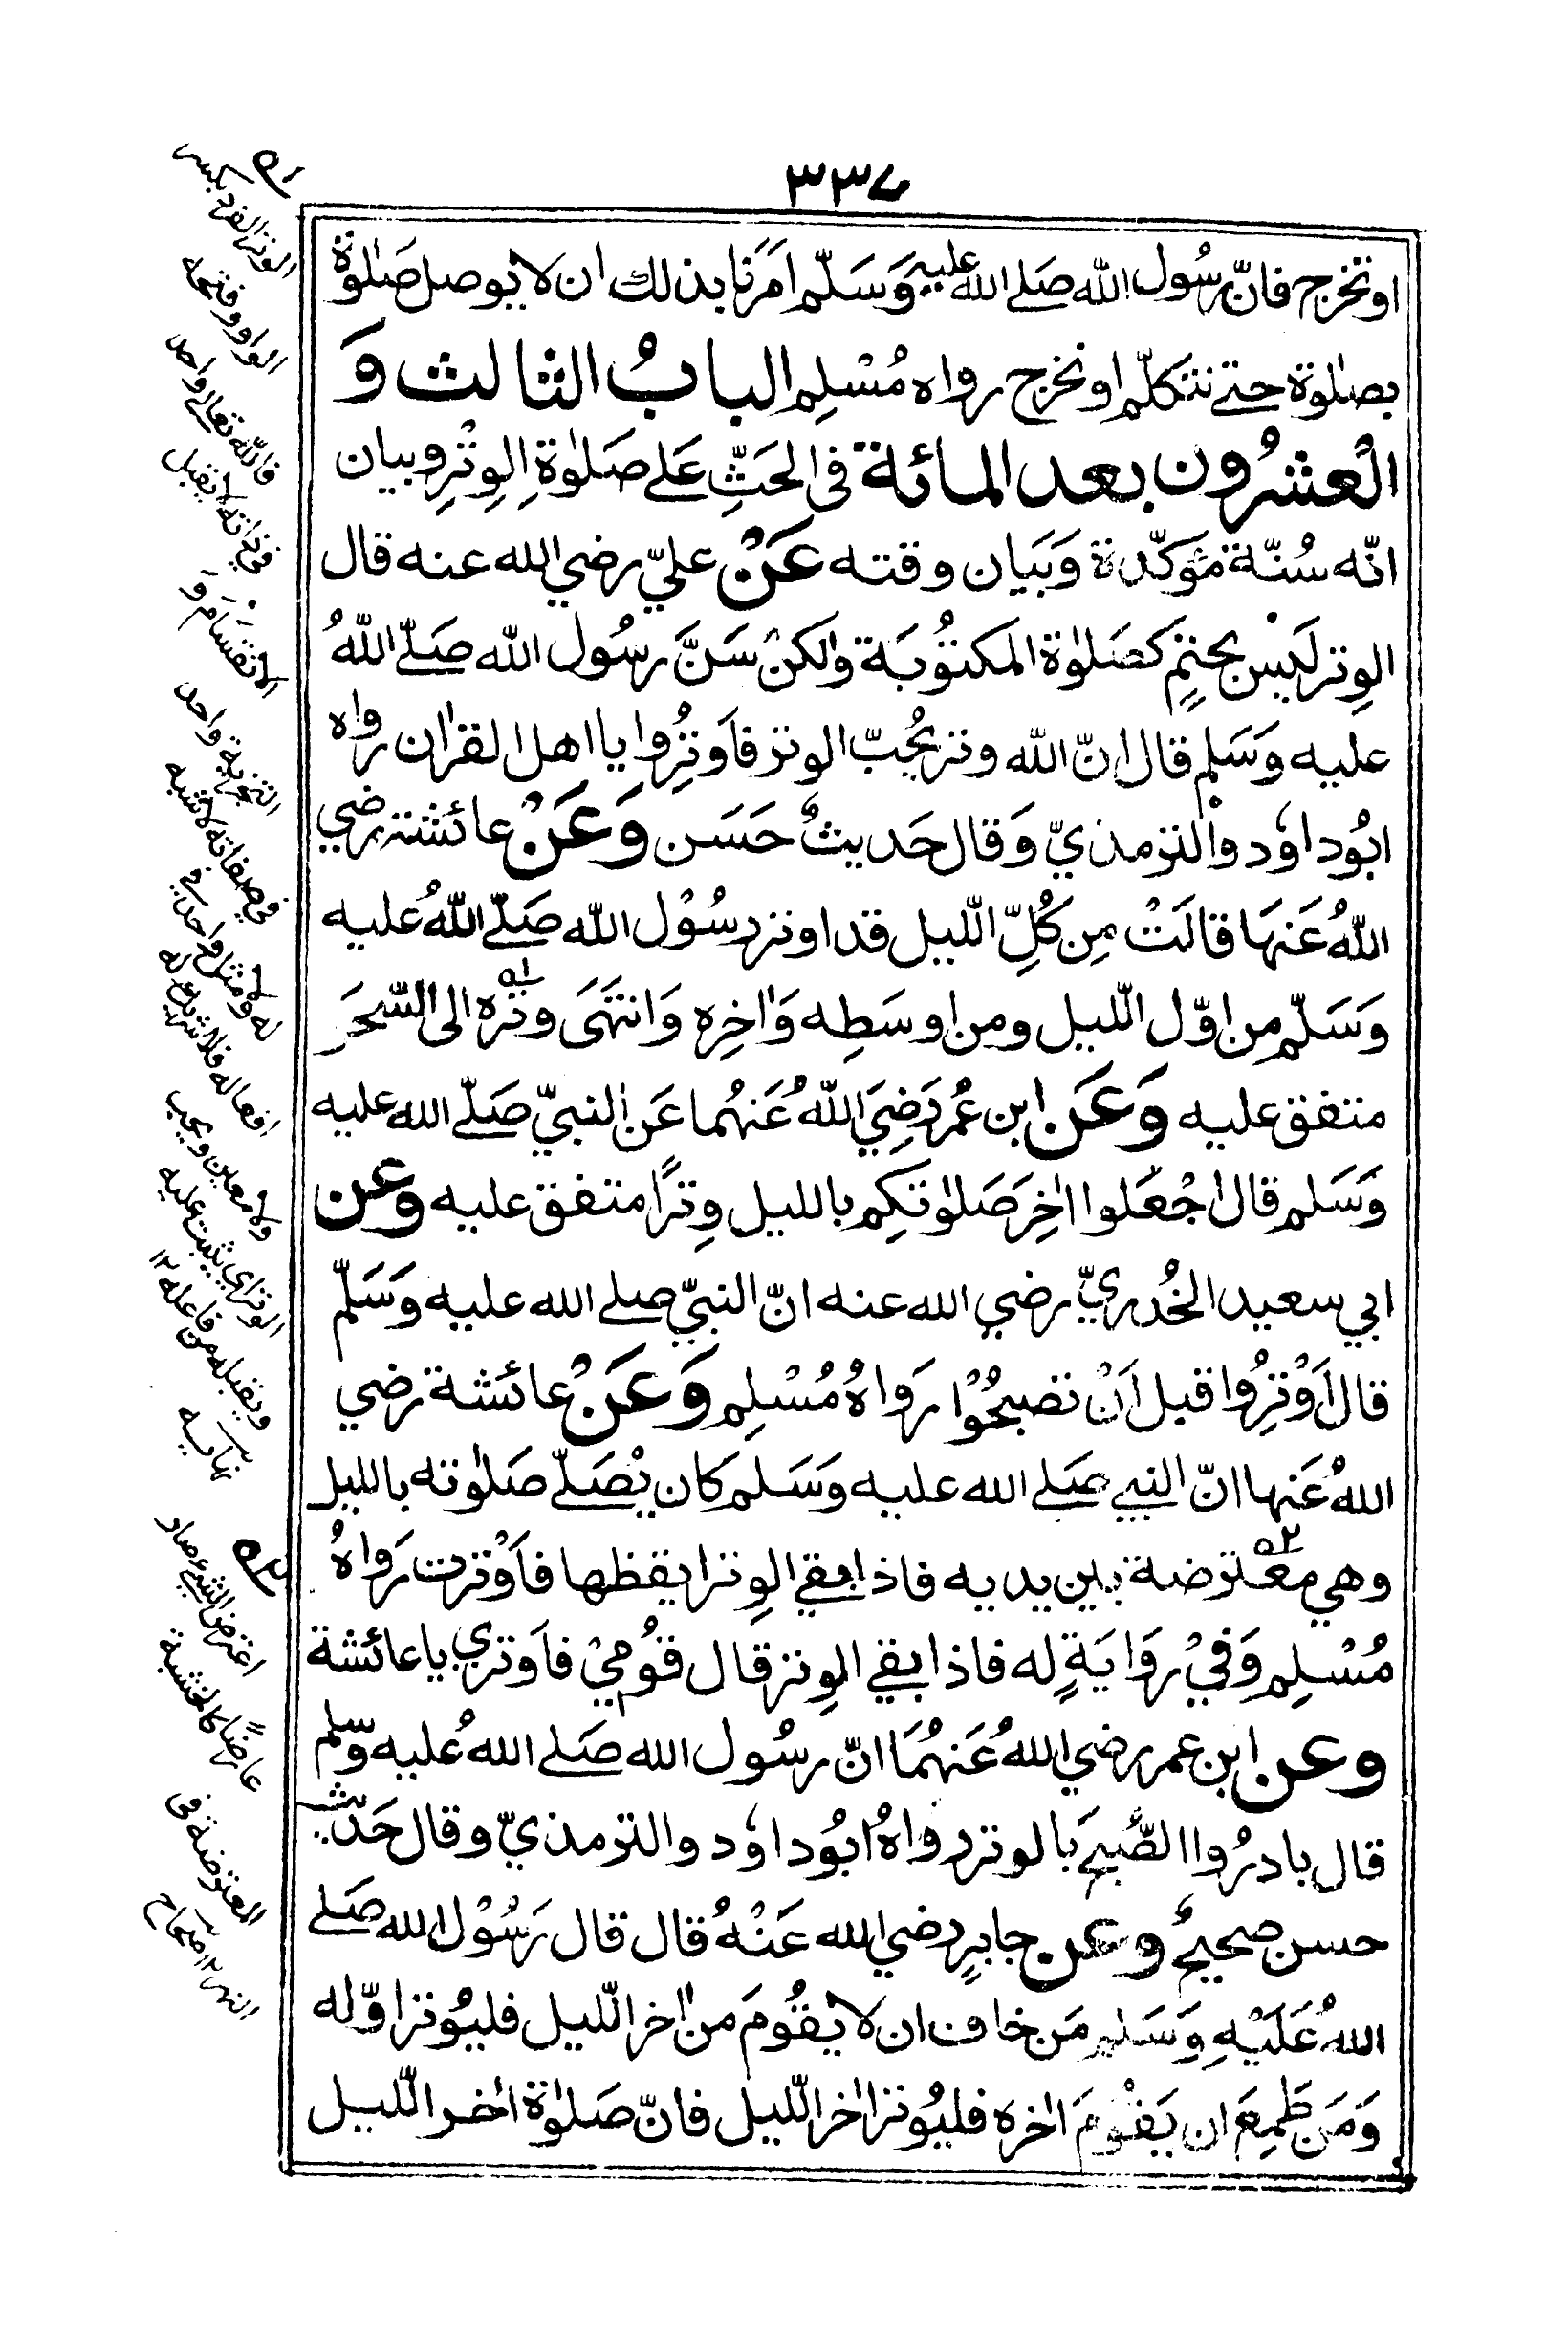 ٣٣٧
او تخرج فانّ رسُول الله صَلے الله عليه وَسَلّم امَرَنا بذلك ان لا يوصل صَلٰوة
بصلٰوة حتے نتكلّم او نخرج رواه مُسْلِم البابُ الثالث وَ
العشرُون بعد المائة فى الحَثِّ عَلے صَلٰوةِ الوِتْرِ وبيان
انّه سُنّة مؤَكّدة وَبَيَان وقته عَنْ عليّ رضي الله عنه قال
الوِتر لَيْس بحتمٍ كَصَلٰوة المكتوُبَة ولكنْ سَنَّ رسُول الله صَلّے اللهُ
عليه وَسَلم قال انّ الله وتر يحُبّ الوتر فاَوتِرُوا يا اهل القراٰن رواه
ابُو داوٗد والترمذيّ وَقال حَديثٌ حَسَن وَعَنْ عائشة رضي
اللهُ عَنهَا قالَتْ مِن كُلِّ الّليل قد اوتر رسُوْل الله صَلّے اللهُ عليه
وَسَلّم من اوّل الّليل ومن اوسَطِه وَاٰخِرِه وَانتهَى وترُه الى السّحَر
متفق عليه وَعَن ابن عُمر رَضِيَ اللهُ عَنهُما عَن النبيّ صَلّے الله عليه
وَسَلم قال اجْعَلوا اٰخِرَ صَلٰوتكِم بالليل وِترًا متفق عليه وعن
ابي سعيد الخُدريّ رضي الله عنه انّ النبيّ صلے الله عليه وَسَلّم
قال اَوْتِرُوا قبل اَنْ تصبحُوْا رَوَاهُ مُسْلِم وَعَنْ عائشة رضي
اللهُ عَنها انّ النبے صَلے الله عليه وَسَلم كان يُصَلّے صَلٰوته بالليل
وهي معترضة بين يديه فاذا بقي الوِتر ايقظها فاَوْترت رَواهُ
مُسْلِم وَفيْ رِوَايَةٍ له فاذا بقي الوِتر قال قوُميْ فاَوتري يا عائشة
وعن ابن عمر رضي اللهُ عَنهُمَا انّ رسُول الله صَلے اللهُ عليه وسلم
قال بادرُوا الصُّبحَ بالوتر رواهُ ابُو داوٗد والترمذيّ وقال حَديث
حسن صحيحٌ وعن جابرٍ رضي الله عَنْهُ قال قال رَسُوْل الله صَلے
اللهُ عَلَيْهِ وَسَلم مَن خاف ان لا يقُومَ من اٰخر الّليل فليُوتر اوّله
وَمَن طَمِعَ ان يَقوْمَ اٰخره فليُوتر اٰخر الّليل فانّ صَلٰوة اٰخر الّليل
الوتر الفرد بكسر
الواو وفتحه
فالله تعالى واحد
في ذاته لا يقبل
الانقسام و
التجزية واحد
في صفاته لا شبه
له ولا مثل واحد في
افعاله فلا شريك له
ولا معين ويحب
الوتر اي يثيب عليه
ويقبله من فاعله ١٢
نهايه
اعترض الشئ صار
عارضًا كالخشبة
المعترضة في
النهر ١٢ صحاح